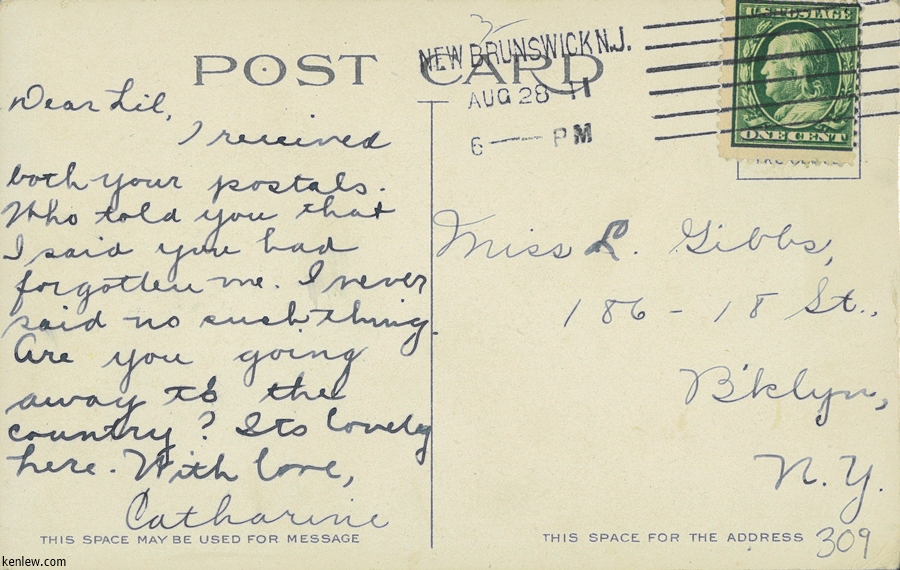 POST CARD
3
NEW BRUNSWICK N.J.
AUG 28 11
6 — PM
U.S. POSTAGE
ONE CENT
Dear Lil,
I received
both your postals.
Who told you that
I said you had
forgotten me. I never
said no such thing.
Are you going
away to the
country? Its lovely
here. With love,
Catharine
THIS SPACE MAY BE USED FOR MESSAGE
Miss L. Gibbs,
186 - 18 St.,
B'klyn,
N.Y.
THIS SPACE FOR THE ADDRESS
309
kenlew.com